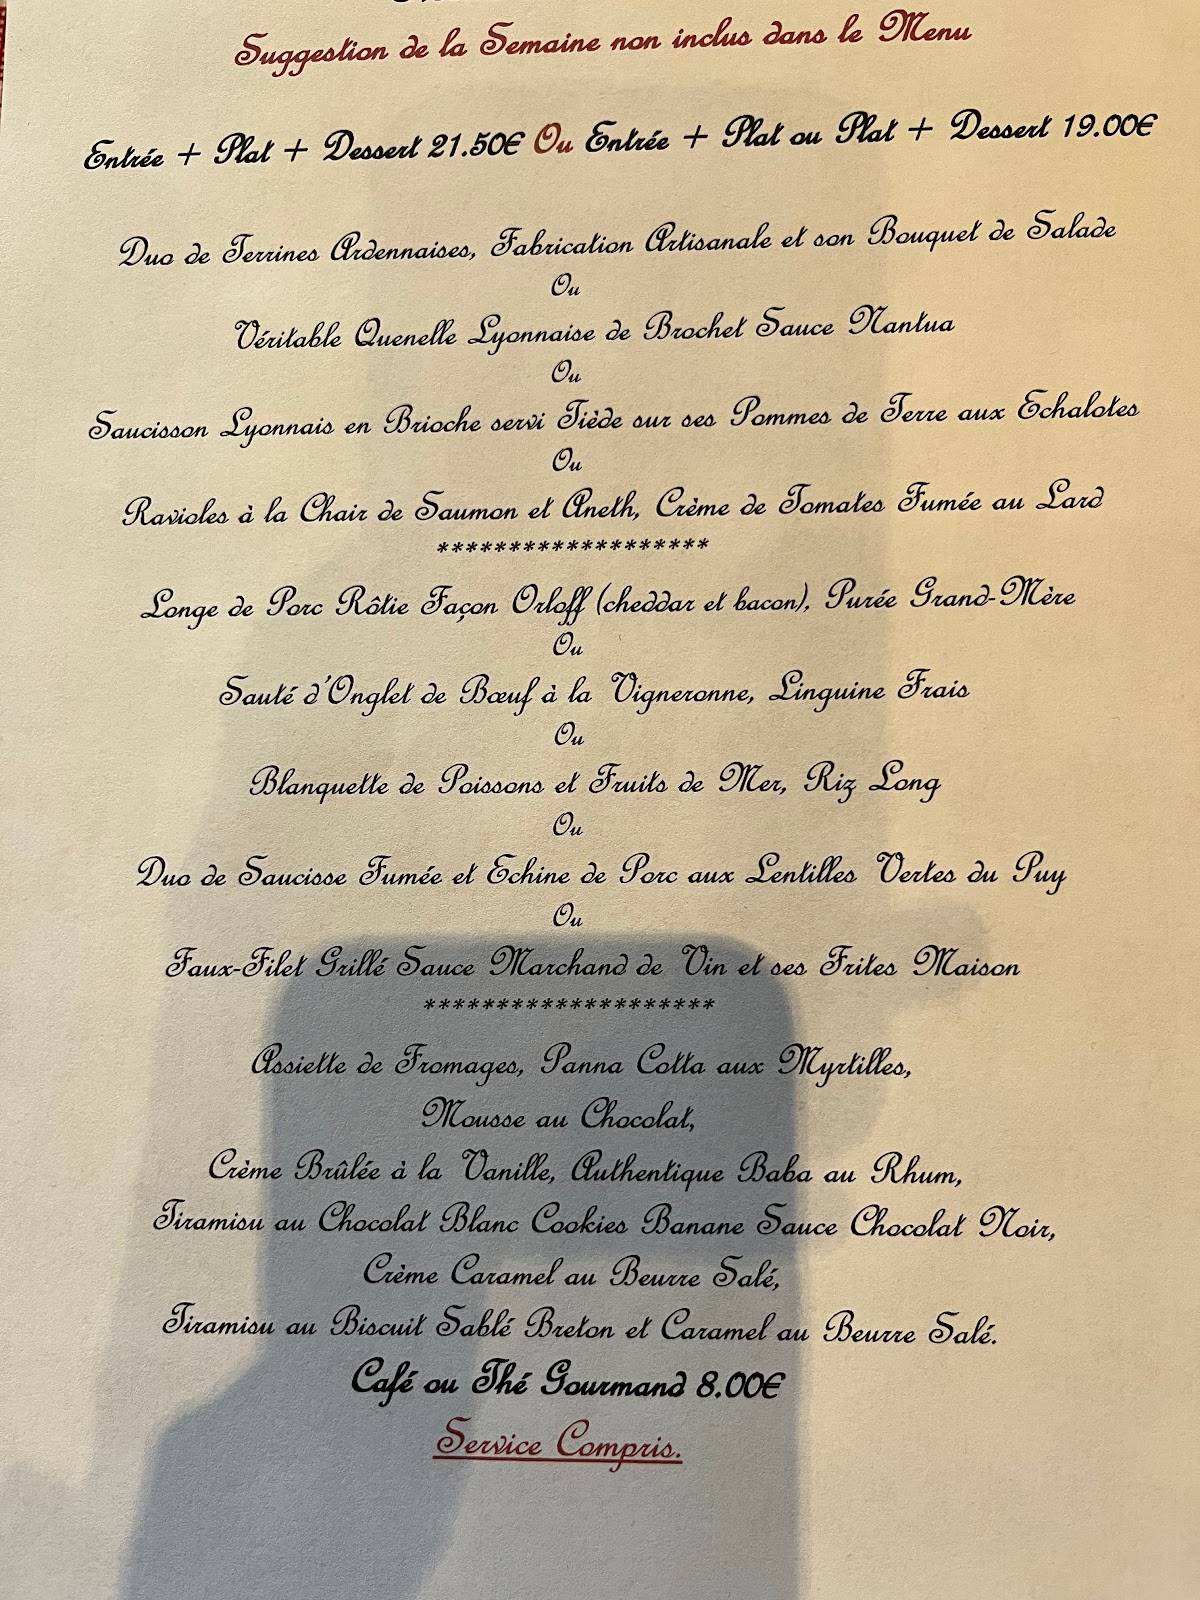 Suggestion de la Semaine non inclus dans le Menu
Entrée + Plat + Dessert 21.50€ Ou Entrée + Plat ou Plat + Dessert 19.00€
Duo de Terrines Ardennaises, Fabrication Artisanale et son Bouquet de Salade
Ou
Véritable Quenelle Lyonnaise de Brochet Sauce Nantua
Ou
Saucisson Lyonnais en Brioche servi Tiède sur ses Pommes de Terre aux Echalotes
Ou
Ravioles à la Chair de Saumon et Aneth, Crème de Tomates Fumée au Lard
*******************
Longe de Porc Rôtie Façon Orloff (cheddar et bacon), Purée Grand-Mère
Ou
Sauté d'Onglet de Bœuf à la Vigneronne, Linguine Frais
Ou
Blanquette de Poissons et Fruits de Mer, Riz Long
Ou
Duo de Saucisse Fumée et Echine de Porc aux Lentilles Vertes du Puy
Ou
Faux-Filet Grillé Sauce Marchand de Vin et ses Frites Maison
********************
Assiette de Fromages, Panna Cotta aux Myrtilles,
Mousse au Chocolat,
Crème Brûlée à la Vanille, Authentique Baba au Rhum,
Tiramisu au Chocolat Blanc Cookies Banane Sauce Chocolat Noir,
Crème Caramel au Beurre Salé,
Tiramisu au Biscuit Sablé Breton et Caramel au Beurre Salé.
Café ou Thé Gourmand 8.00€
Service Compris.